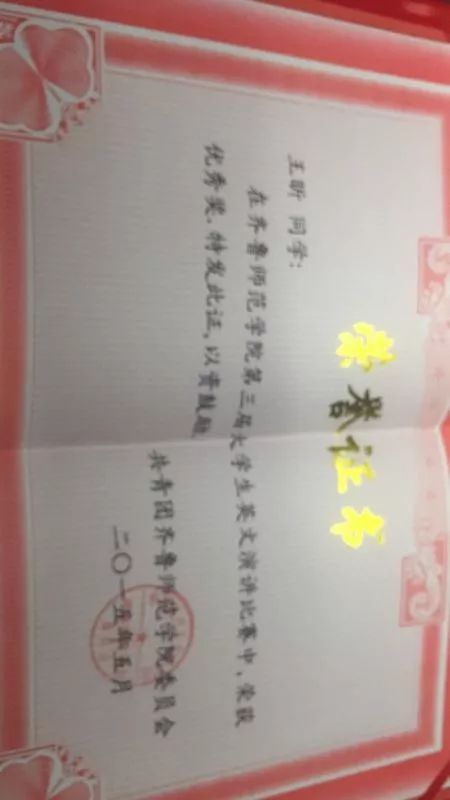 荣誉证书
王昕 同学：
在齐鲁师范学院第三届大学生英文演讲比赛中，荣获
优秀奖，特发此证，以资鼓励
共青团齐鲁师范学院委员会
二〇一五年五月